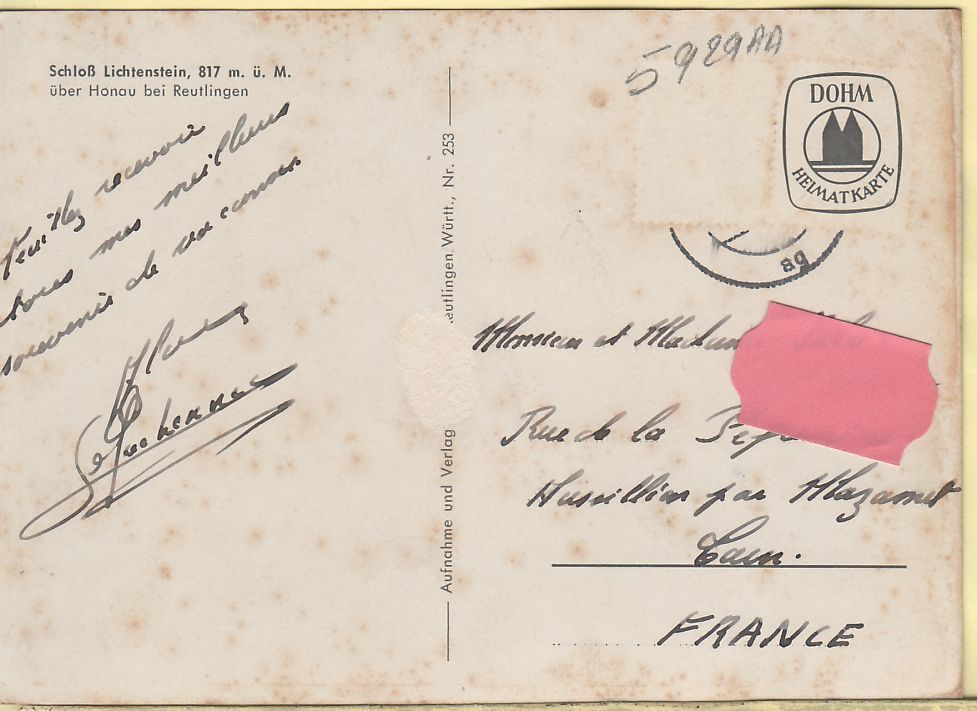 Schloß Lichtenstein, 817 m. ü. M.
über Honau bei Reutlingen
Veuillez recevoir
mes meilleurs
souvenirs de vacances
Aufnahme und Verlag
eutlingen, Württ., Nr. 253
5929AA
DOHM
HEIMATKARTE
ag
Monsieur et Madame
Rue de la
par Mazamet
Tarn.
FRANCE